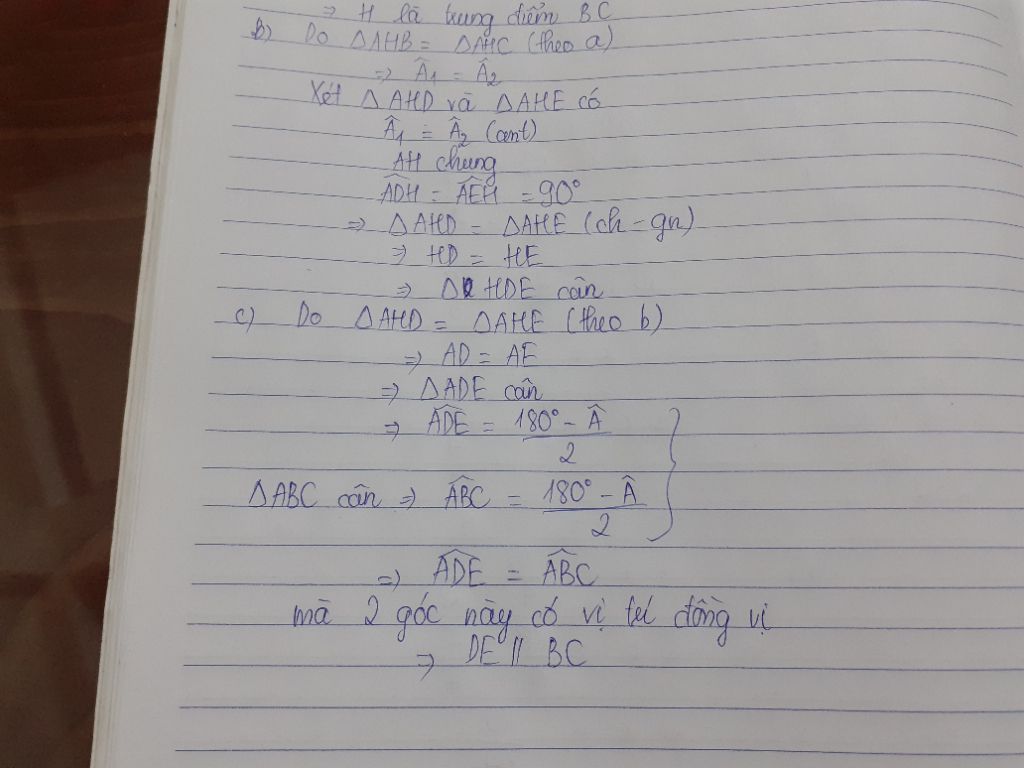 ⇒ H là trung điểm BC
b) Do △AHB = △AHC (theo a)
⇒ Â₁ = Â₂
Xét △AHD và △AHE có
Â₁ = Â₂ (cmt)
AH chung
\widehat{ADH} = \widehat{AEH} = 90°
⇒ △AHD = △AHE (ch - gn)
⇒ HD = HE
⇒ △HDE cân
c) Do △AHD = △AHE (theo b)
⇒ AD = AE
⇒ △ADE cân
⇒ \widehat{ADE} = \frac{180° - Â}{2}
△ABC cân ⇒ \widehat{ABC} = \frac{180° - Â}{2}
⇒ \widehat{ADE} = \widehat{ABC}
mà 2 góc này có vị trí đồng vị
⇒ DE // BC